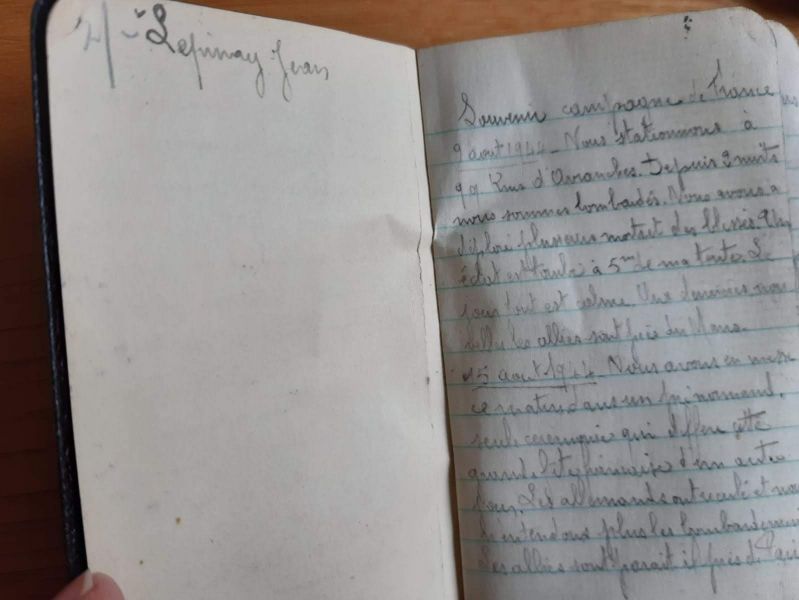 Lepinay Jean
Souvenir campagne de France
9 août 1944 - Nous stationnons à
qq Kms d'Avranches. Depuis 2 nuits
nous sommes bombardés. Nous avons à
déploré plusieurs morts et des blessés. Un
éclat est tombé à 5m de ma tente. Le
jour tout est calme. Aux dernières nou
velles les alliés sont près du Mans.
15 août 1944. Nous avons eu messe
ce matin dans un pré normand,
seule cérémonie qui diffère cette
grande fête d'un autre
jour. Les allemands ont reculé et nous
n'entendons plus les bombardements
Les alliés sont parait il près de Paris